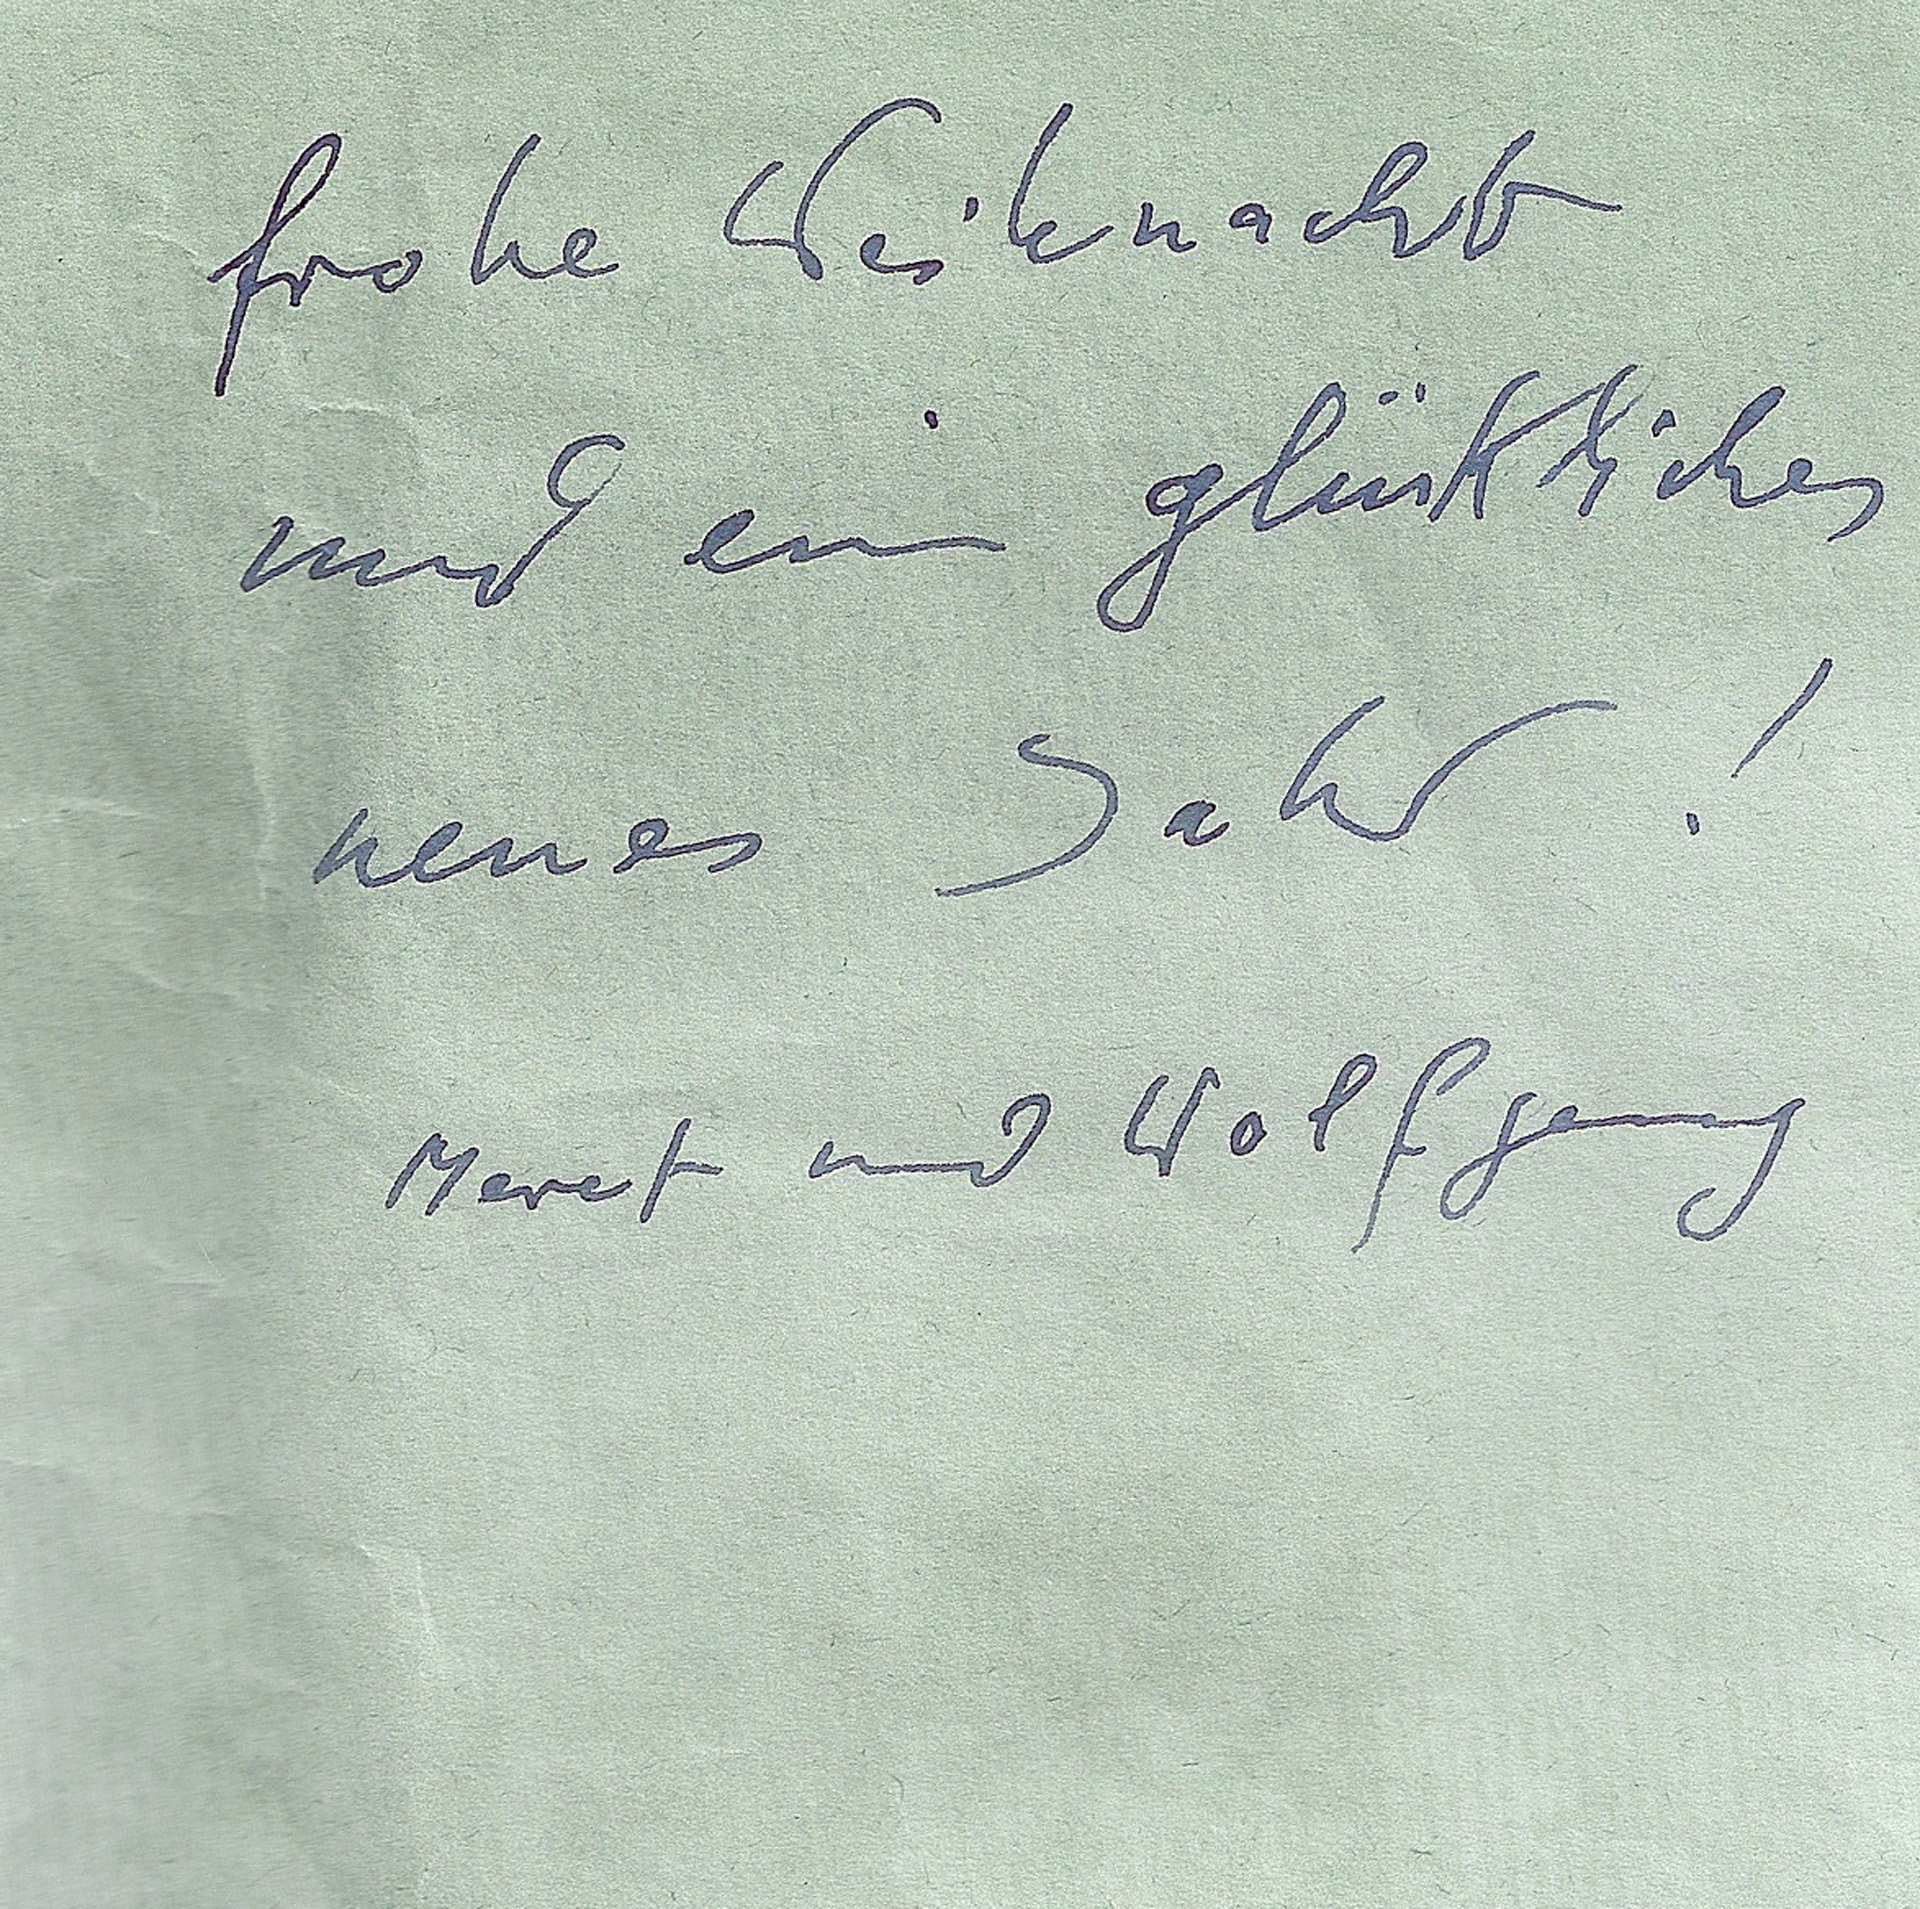 frohe Weihnacht
und ein glückliches
neues Jahr!
Meret und Wolfgang